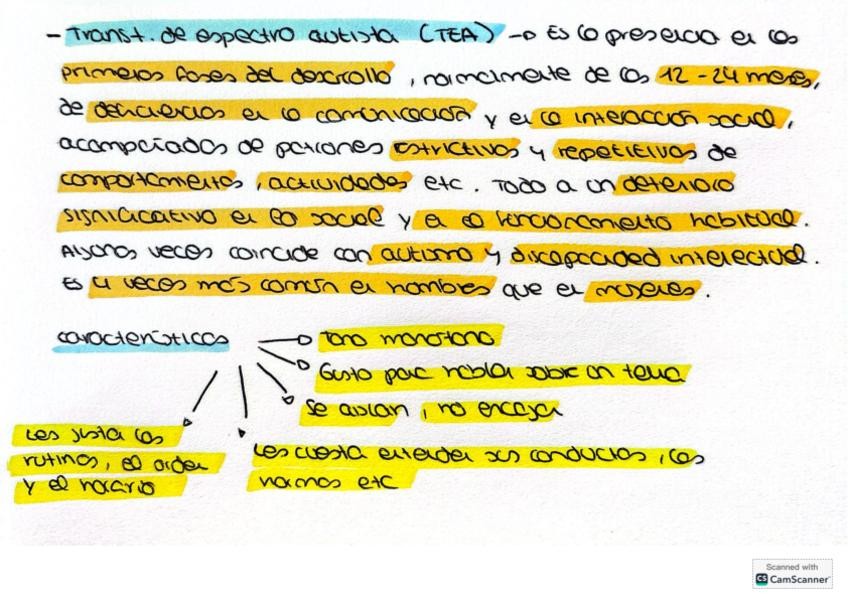 - Transt. de espectro autista (TEA) → Es la presencia en las
primeras fases del desarrollo, normalmente de los 12-24 meses,
de deficiencias en la comunicación y en la interacción social,
acompañadas de patrones restrictivos y repetitivos de
comportamientos, actividades etc. Todo a un deterioro
significativo en lo social y en el funcionamiento habitual.
Algunas veces coincide con autismo y discapacidad intelectual.
Es 4 veces más común en hombres que en mujeres.
características
→ Tono monótono
→ Gusto para hablar sobre un tema
→ Se aislan, no encajan
Les gusta las
rutinas, el orden
y el horario
Les cuesta entender sus conductas, las
normas etc
Scanned with
CS CamScanner